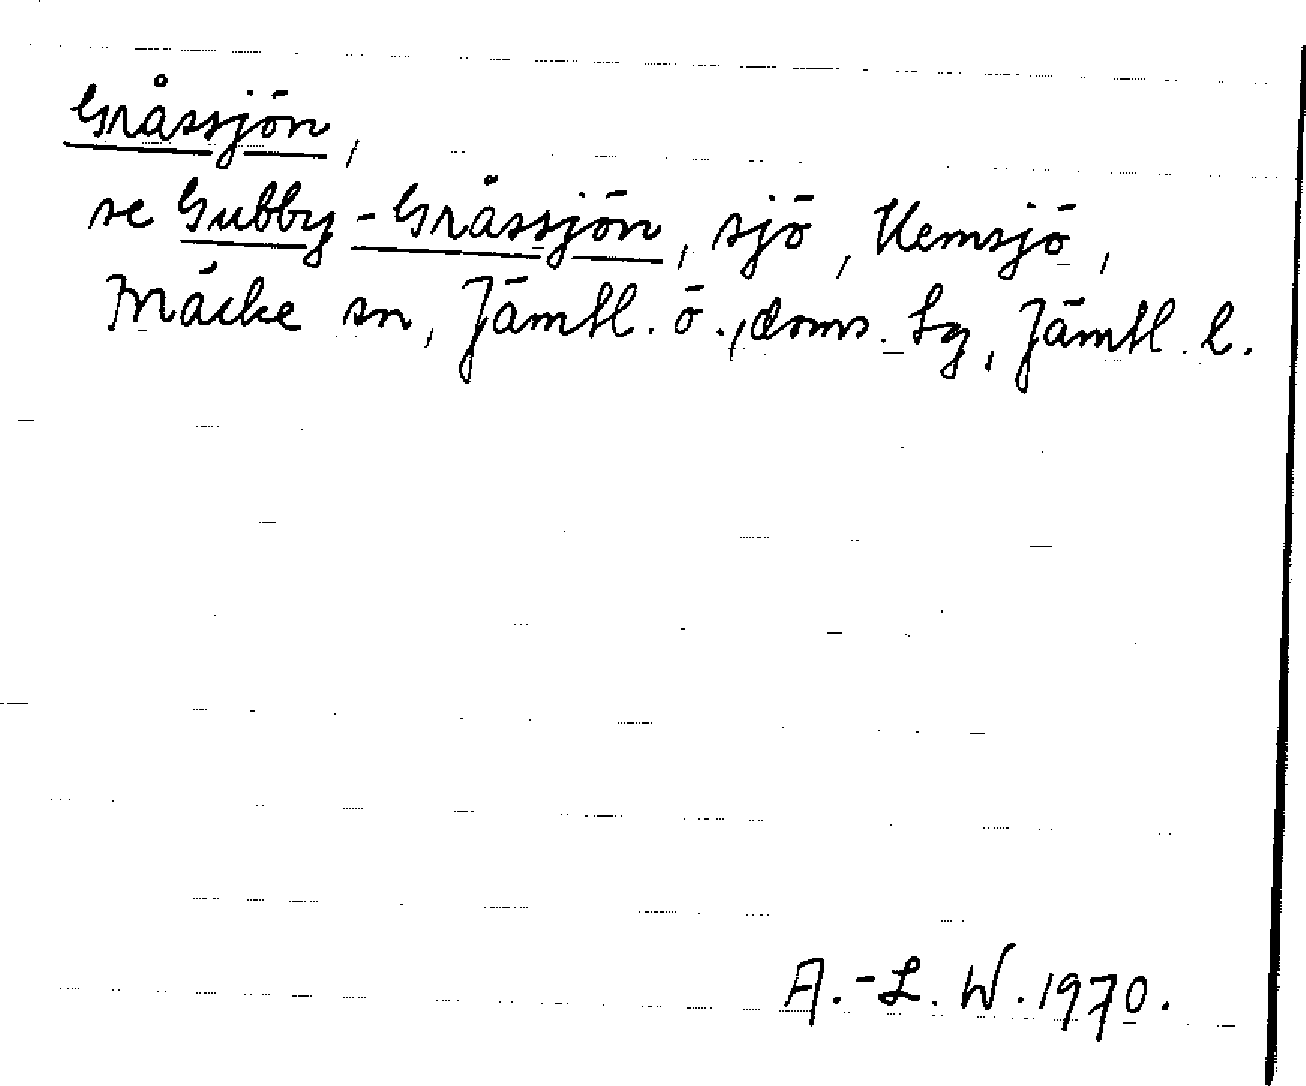 Gråssjön,
se Gubby-Gråssjön, sjö, Kemsjö,
Mäcke sn, Jämtl. ö., doms. tg, Jämtl. l.
A.-L. W. 1970.